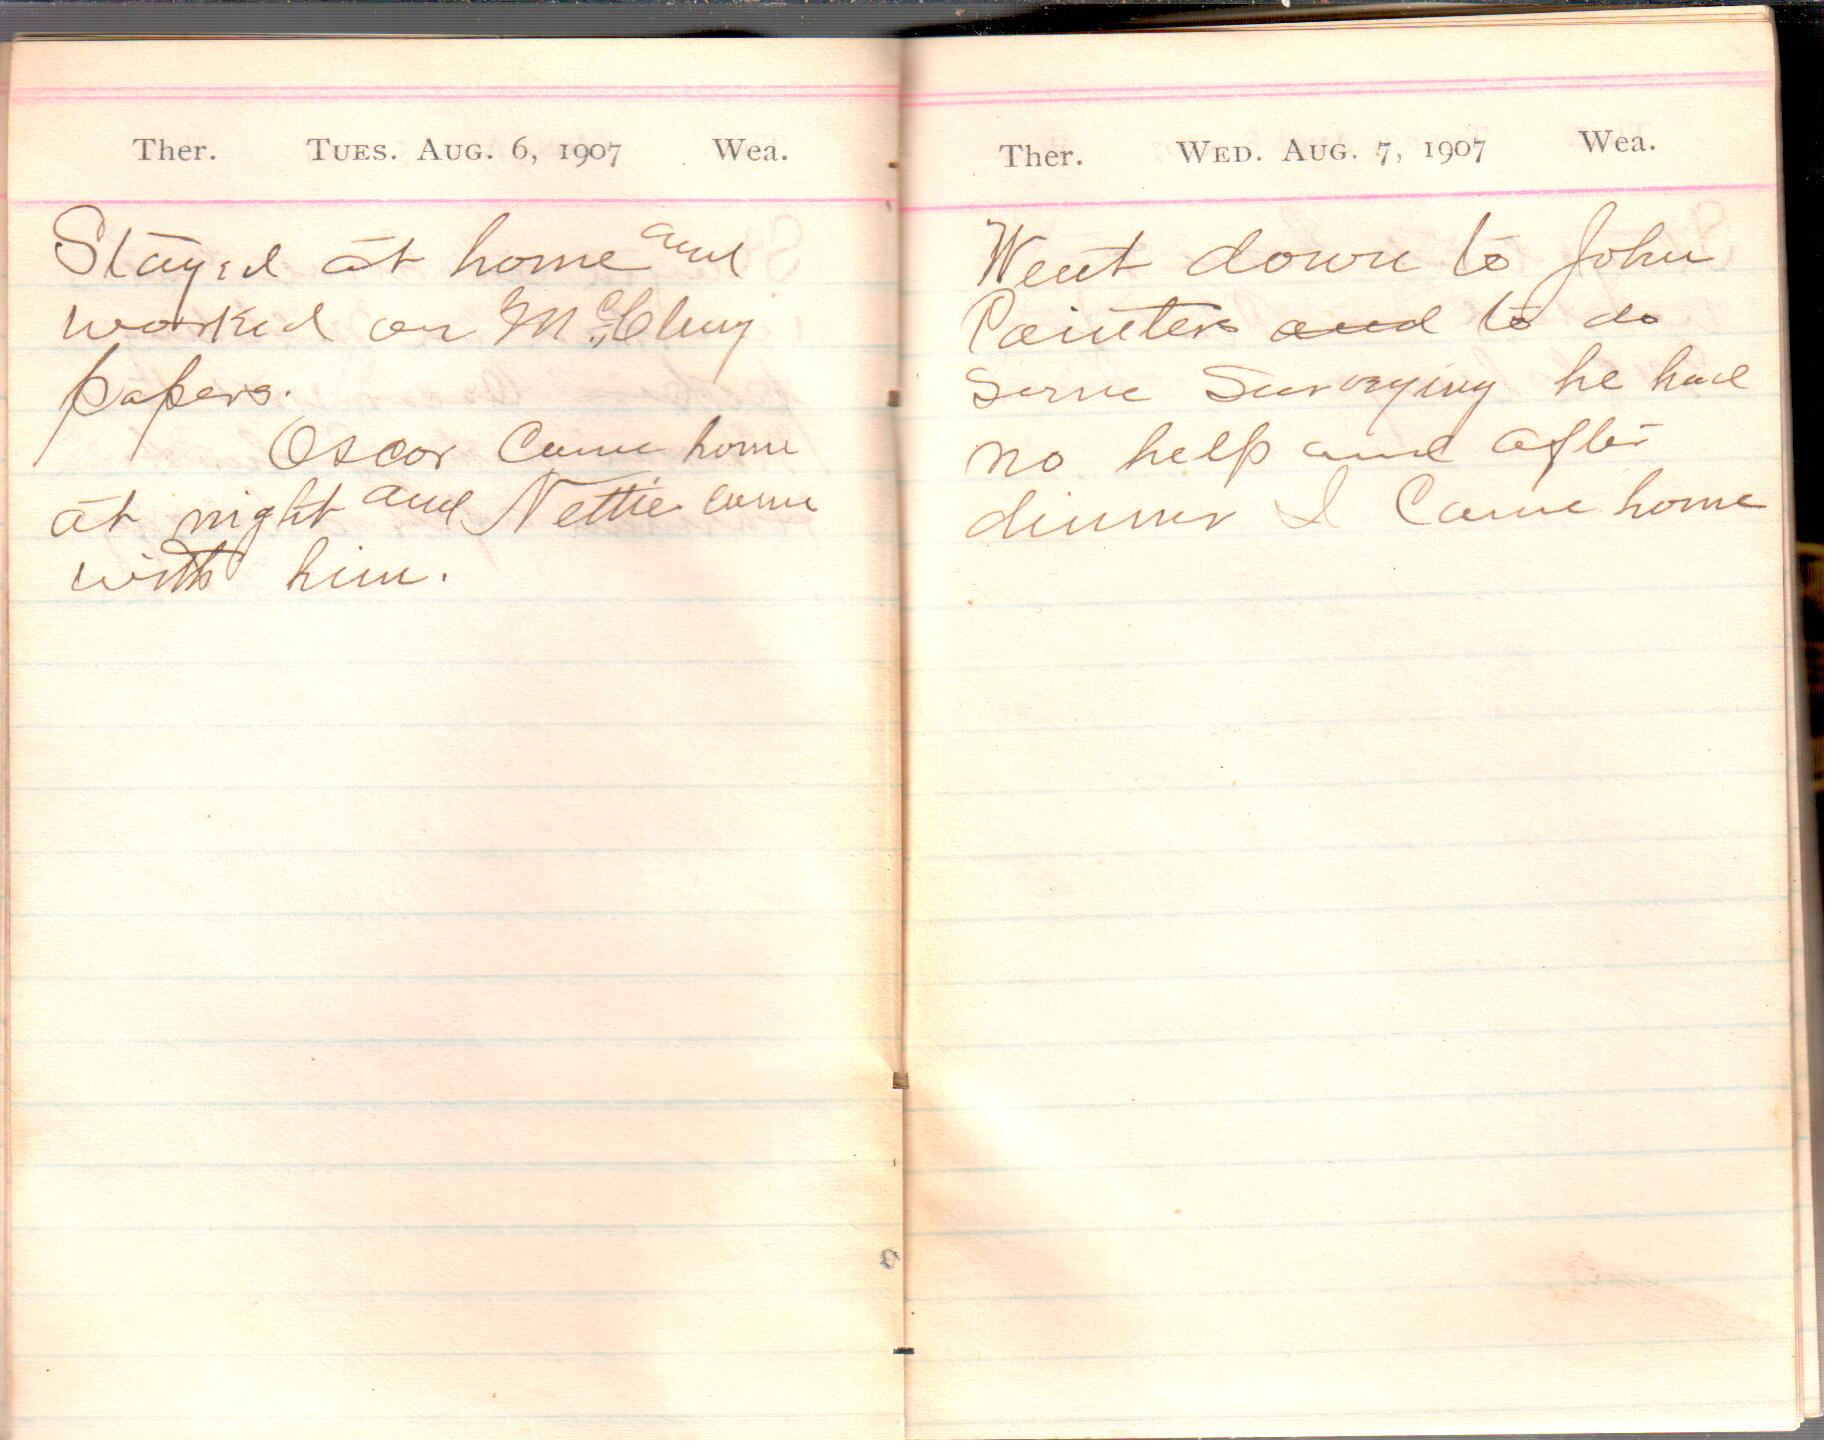 Ther. TUES. AUG. 6, 1907 Wea.
Stayed at home and
worked on McCluny
papers.
Oscar Came home
at night and Nettie came
with him.
Ther. WED. AUG. 7, 1907 Wea.
Went down to John
Painters and to do
some Surveying he had
no help and after
dinner I Came home